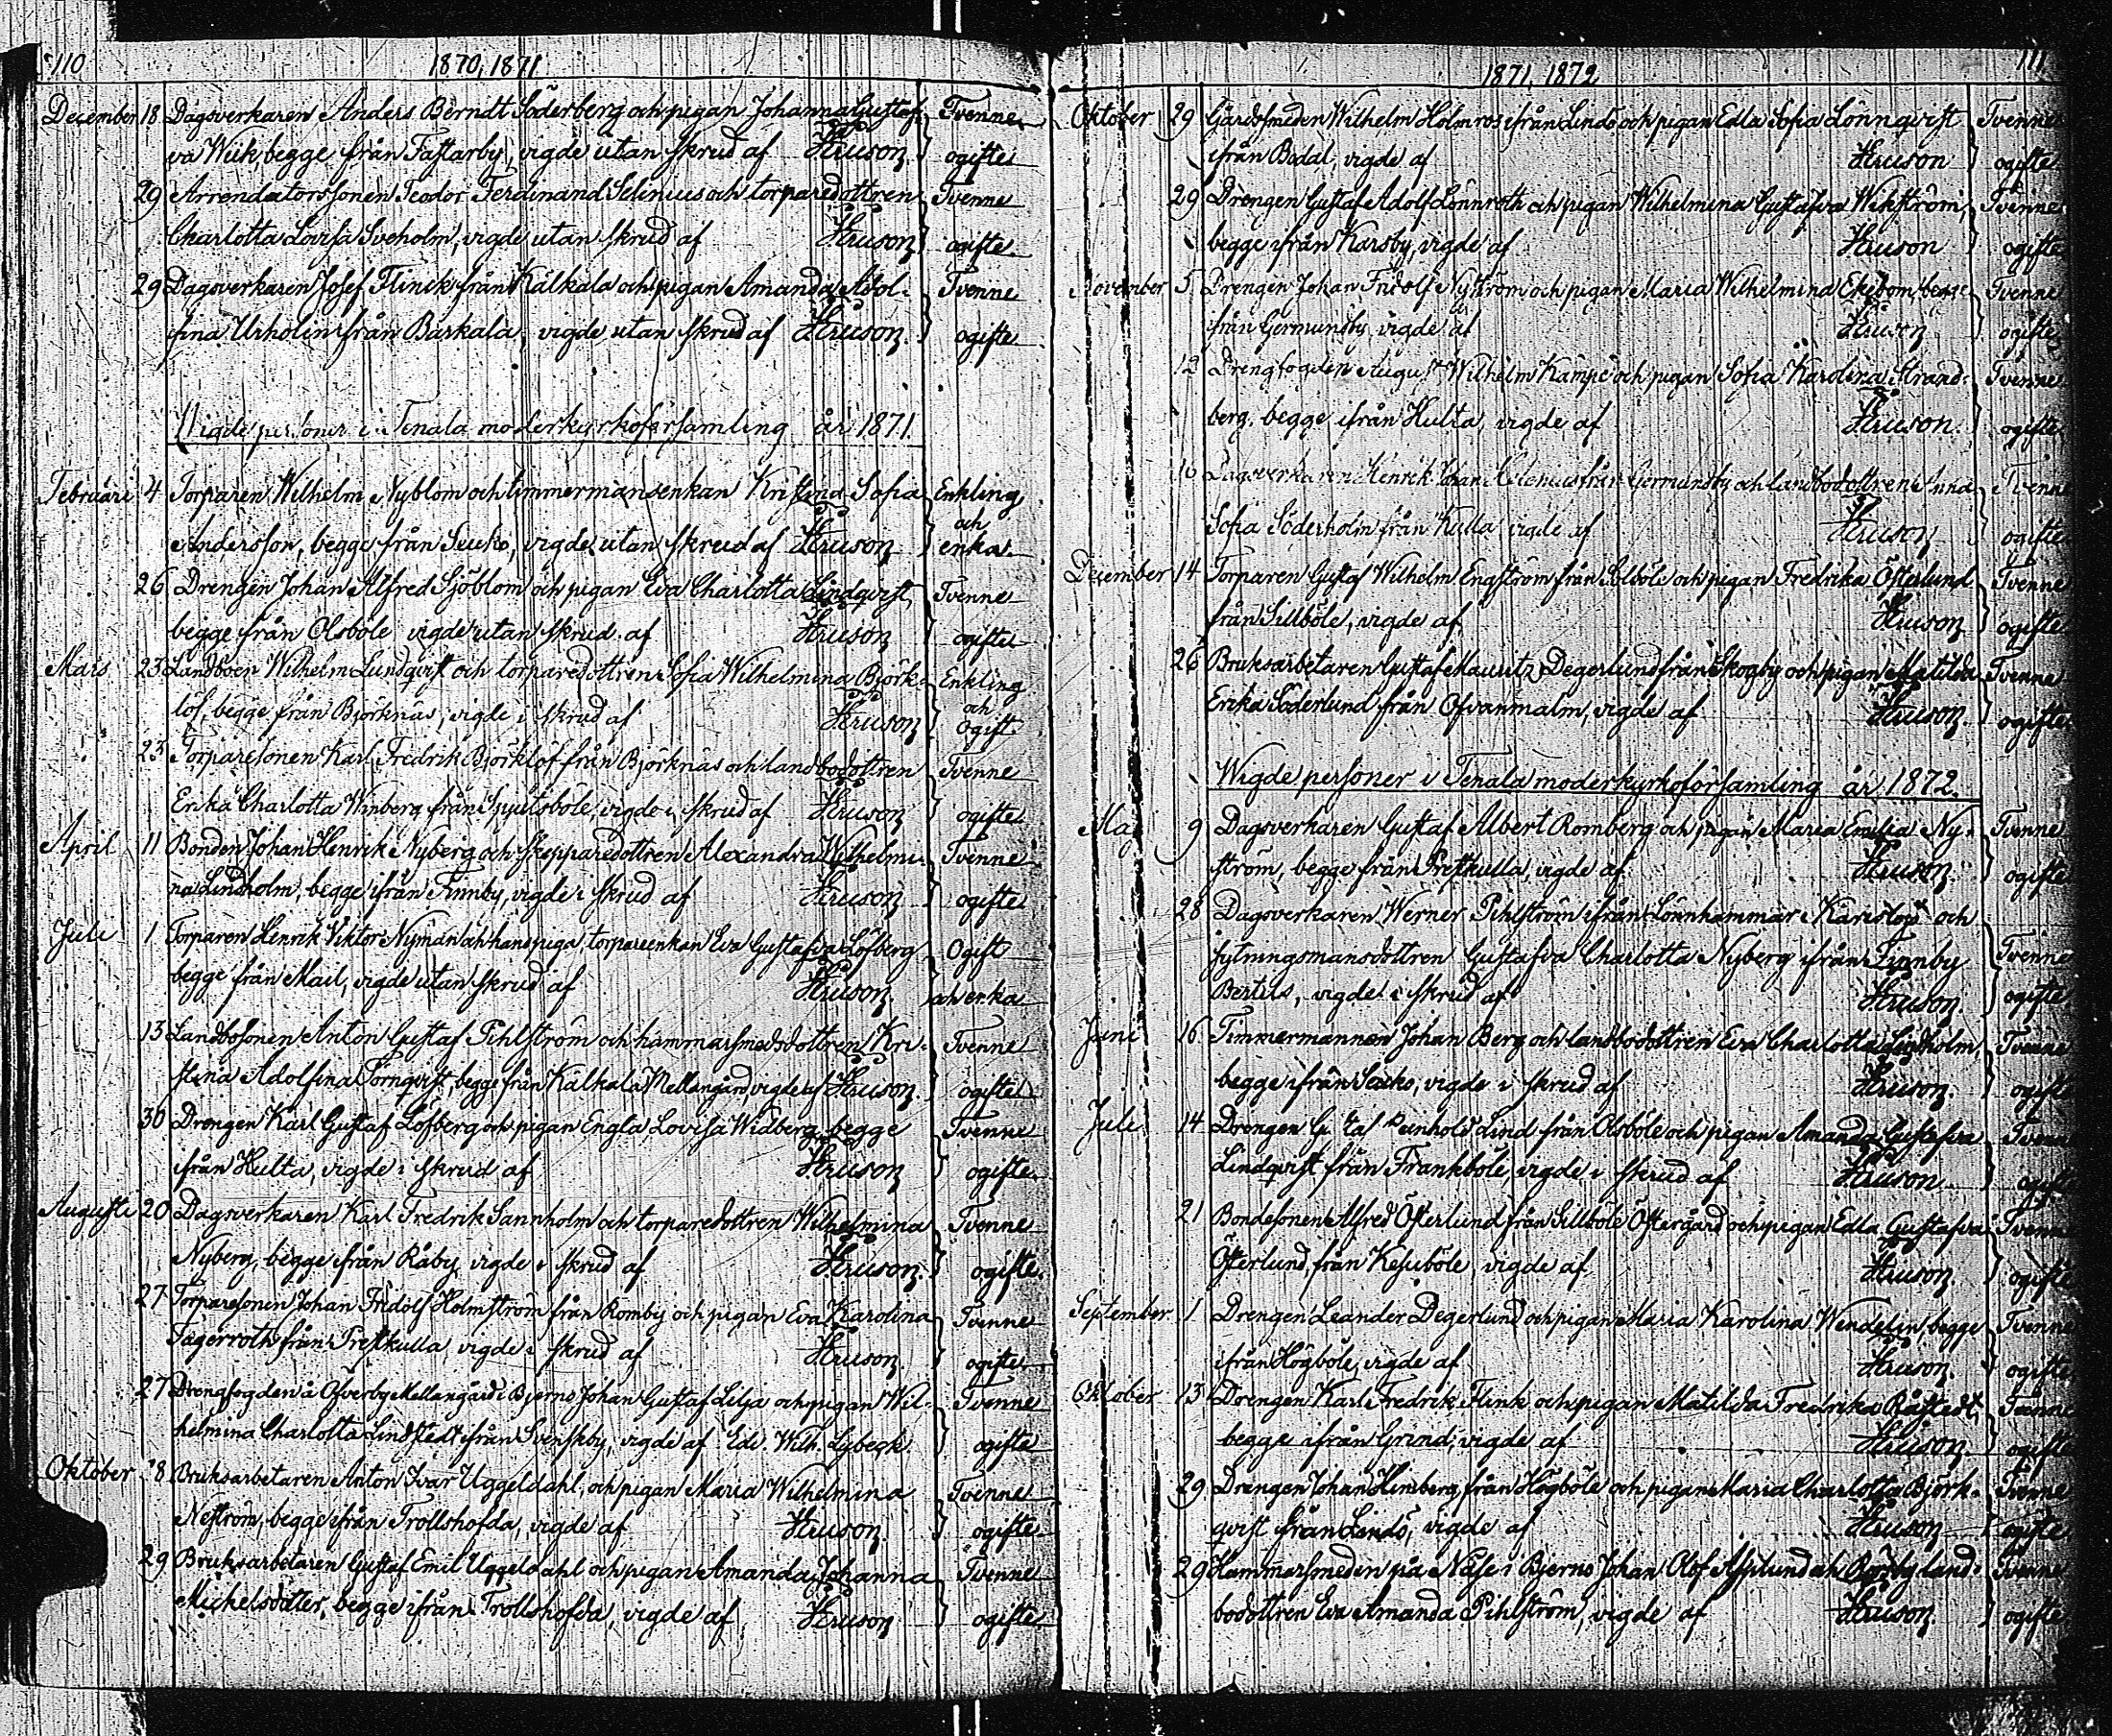 110
1870, 1871
December 18 Dagsverkaren Anders Berndt Söderberg och pigan Johanna Gustaf- Tvenne
va Wiik begge från Fastarby, vigde utan skrud af Hruson. ogifte
29 Arrendatorssonen Teodor Ferdinand Selenius och torparedottren Tvenne
Charlotta Lovisa Sveholm, vigde utan skrud af Hruson ogifte.
29 Dagsverkaren Josef Flinck från Kälkala och pigan Amanda Adol- Tvenne
fina Urholin från Barkala, vigde utan skrud af Hruson. ogifte
Vigde personer i Tenala moderkyrkoförsamling år 1871.
Februari 4 Torparen Wilhelm Nyblom och timmermansenkan Kristina Sofia Enkling
och
Andersson, begge från Seuko, vigde utan skrud af Hruson enka.
26 Drengen Johan Alfred Sjöblom och pigan Eva Charlotta Lindqvist, Tvenne
begge från Olsböle vigde utan skrud af Hruson ogifte
Mars 23 Landboen Wilhelm Lundqvist och torparedottren Sofia Wilhelmina Björk- Enkling
och
löf, begge från Björknäs, vigde i skrud af Hruson Ogift.
25 Torparesonen Karl Fredrik Björklöf från Björknäs och landbodottren Tvenne
Erika Charlotta Winberg från vigde i skrud af Hruson ogifte
April 11 Bonden Johan Henrik Nyberg och skepparedottren Alexandra Wilhelmi- Tvenne
na Lindholm, begge ifrån Finnby, vigde i skrud af Hruson ogifte
Juli 1 Torparen Henrik Viktor Nyman och hans piga, torpareenkan Eva Gustafva Löfberg Ogift
begge från Mail, vigde utan skrud af Hruson. och enka
13 Landbosonen Anton Gustaf Pihlström och hammarsmedsdottren Kri- Tvenne
stina Adolfina Törnqvist, begge från Kälkala Mellangård, vigde af Hruson. ogifte
30 Drengen Karl Gustaf Löfberg och pigan Engla Lovisa Widberg begge Tvenne
ifrån Hulta, vigde i skrud af Hruson ogifte
Augusti 20 Dagsverkaren Karl Fredrik Sannholm och torparedottren Wilhelmina Tvenne
Nyberg, begge ifrån Råby vigde i skrud af Hruson. ogifte.
27 Torparesonen Johan Fridolf Holmström från Romby och pigan Eva Karolina Tvenne
Fagerroth från Prestkulla vigde i skrud af Hruson. ogifte
27 Drengfogden å Ofverby Mellangård i Bjerno Johan Gustaf Lilja och pigan Wil- Tvenne
helmina Charlotta Lindstedt ifrån Svenskby, vigde af Edv. Wilh. Lybeck. ogifte
Oktober 8 Bruksarbetaren Anton Ivar Uggeldahl, och pigan Maria Wilhelmina Tvenne
Neström, begge ifrån Trollshofda, vigde af Hruson. ogifte
29 Bruksarbetaren Gustaf Emil Uggeldahl och pigan Amanda Johanna Tvenne
Mickelsdotter, begge ifrån Trollshofda, vigde af Hruson ogifte
111
1871, 1872
Oktober 29 Gårdssmeden Wilhelm Holmros ifrån Lindö och pigan Edla Sofia Lönnqvist Tvenne
ifrån Bodal, vigde af Hruson ogifte
29 Drengen Gustaf Adolf Lönnroth och pigan Wilhelmina Gustafva Wikström, Tvenne
begge ifrån Karsby, vigde af Hruson ogifte
November 5 Drengen Johan Fridolf Nyström och pigan Maria Wilhelmina Ekebom, begge Tvenne
ifrån Germundsby vigde af Hruson ogifte
12 Drengfogden August Wilhelm Kämpe och pigan Sofia Karolina Strand- Tvenne
berg, begge ifrån Hulta, vigde af Hruson. ogifte
16 Dagsverkaren Henrik Johan från Germundsby och landbodottren Anna Tvenne
Sofia Söderholm från Kulla vigde af Hruson ogifte
December 14 Torparen Gustaf Wilhelm Engström från Solböle och pigan Fredrika Österlund Tvenne
från Sillböle, vigde af Hruson ogifte
26 Bruksarbetaren Gustaf Mauritz Degerlund från Skogby och pigan Matilda Tvenne
Erika Söderlund från Ofvanmalm, vigde af Hruson. ogifte
Wigde personer i Tenala moderkyrkoförsamling år 1872.
Maj 9 Dagsverkaren Gustaf Albert Romberg och pigan Maria Emilia Ny- Tvenne
ström, begge från Prestkulla, vigde af Hruson. ogifte
28 Dagsverkaren Werner Pihlström ifrån Lönnhammar i Karislojo och
fylningsmansdottren Gustafva Charlotta Nyberg ifrån Finnby Tvenne
Bertils, vigde i skrud af Hruson. ogifte
Juni 16 Timmermannen Johan Berg och landbodottren Eva Charlotta Lindholm, Tvenne
begge ifrån Seuko, vigde i skrud af Hruson. ogifte
Juli 14 Drengen Gustaf Reinhold Lind från Olsböle och pigan Amanda Gustafva Tvenne
Lindqvist från Frankböle, vigde i skrud af Hruson ogifte
21 Bondesonen Alfred Österlund från Sillböle Östergård och pigan Edla Gustafva Tvenne
Österlund, från Kesuböle, vigde af Hruson ogifte
September 1 Drengen Leander Degerlund och pigan Maria Karolina Wendelin, begge Tvenne
ifrån Högböle, vigde af Hruson. ogifte
Oktober 13 Drengen Karl Fredrik Flink och pigan Matilda Fredrika Råstedt, Tvenne
begge ifrån Grind, vigde af Hruson. ogifte
29 Drengen Johan Hinsberg från Högböle och pigan Maria Charlotta Björk- Tvenne
qvist från Lindö, vigde af Hruson ogifte
29 Hammarsmeden på Näse i Bjerno Johan Olof Asplund och land- Tvenne
bodottren Eva Amanda Pihlström, vigde af Hruson. ogifte